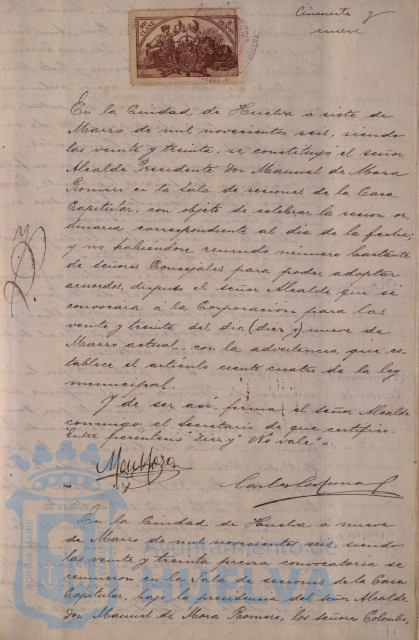 Cincuenta y
nueve
En la Ciudad de Huelva á siete de
Marzo de mil novecientos seis, siendo
las veinte y treinta, se constituyó el señor
Alcalde Presidente Don Manuel de Mora
Romero en la Sala de sesiones de la Casa
Capitular, con objeto de celebrar la sesion or
dinaria correspondiente al dia de la fecha,
y no habiendose reunido número bastante
de señores Concejales para poder adoptar
acuerdos, dispuso el señor Alcalde que se
convocara á la Corporacion para las
veinte y treinta del dia (diez y) nueve de
Marzo actual, con la advertencia que es-
tablece el artículo ciento cuatro de la ley
municipal.
Y de ser así, firma el señor Alcalde
conmigo el Secretario de que certifico.
Entre parentesis "diez y" No vale".
En la Ciudad de Huelva á nueve
de Marzo de mil novecientos seis, siendo
las veinte y treinta previa convocatoria se
reunieron en la Sala de sesiones de la Casa
Capitular, bajo la presidencia del señor Alcalde
Don Manuel de Mora Romero, los señores Colombo,
Ayuntamiento de
HUELVA